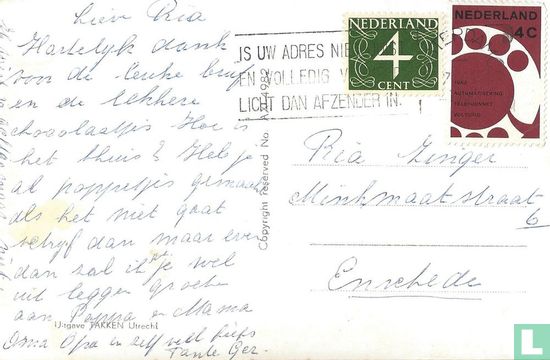 Lieve Ria
Hartelijk dank
voor de leuke brief
en de lekkere
chocolaatjes Hoe is
het thuis? Heb je
al poppetjes gemaakt
als het niet gaat
schrijf dan maar even
dan zal ik 't je wel
uit leggen groeten
aan Pappa en Mama
Oma Opa en zelf veel liefs
Tante Ger.
Uitgave TAKKEN Utrecht
Copyright reserved No
IS UW ADRES NIET JUIST
EN VOLLEDIG VERMELD
LICHT DAN AFZENDER IN.
NEDERLAND
4
CENT
NEDERLAND
4C
1962
AUTOMATISERING
TELEFOONNET
VOLTOOID
Ria Zinger
Minkmaatstraat
6
Enschede